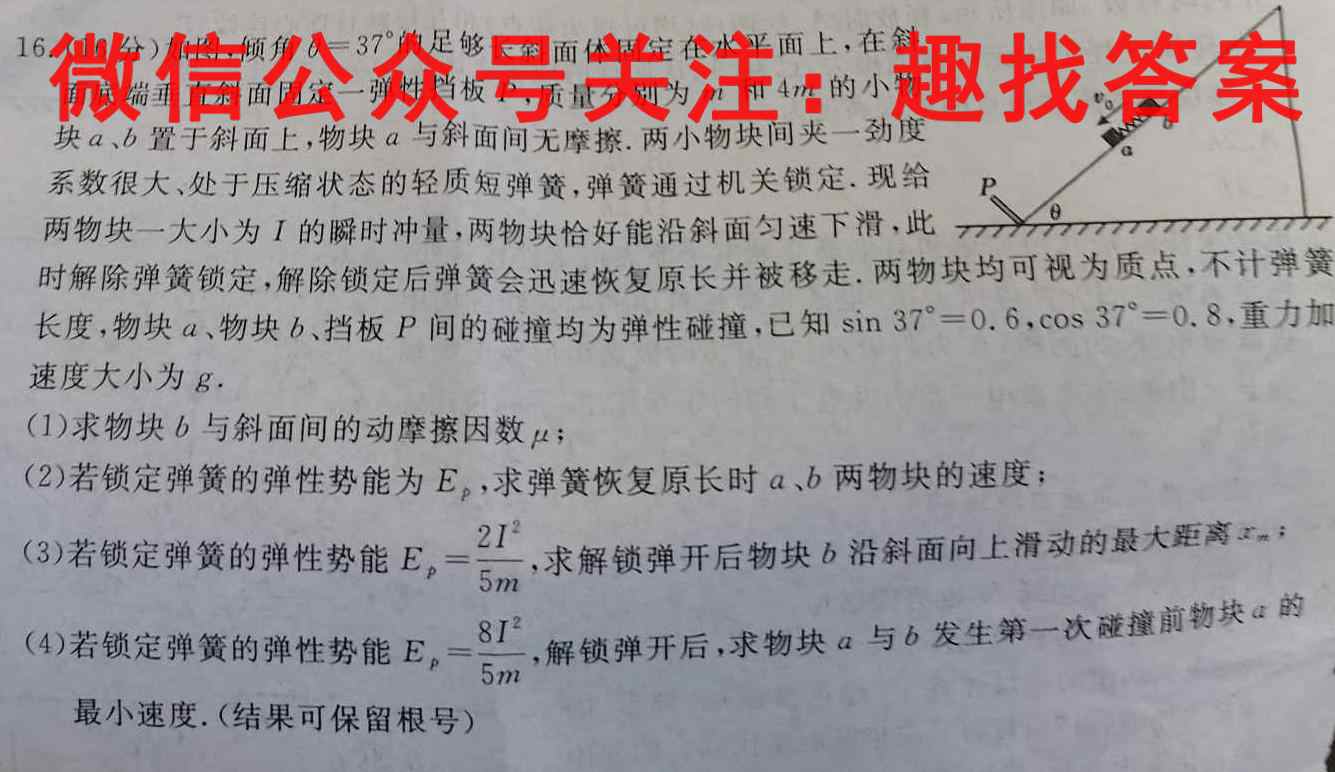 16.(16分)如图,倾角θ=37°的足够长斜面体固定在水平面上,在斜
面底端垂直斜面固定一弹性挡板P,质量分别为m和4m的小物
块a、b置于斜面上,物块a与斜面间无摩擦.两小物块间夹一劲度
系数很大、处于压缩状态的轻质短弹簧,弹簧通过机关锁定.现给
两物块一大小为I的瞬时冲量,两物块恰好能沿斜面匀速下滑,此
时解除弹簧锁定,解除锁定后弹簧会迅速恢复原长并被移走.两物块均可视为质点,不计弹簧
长度,物块a、物块b、挡板P间的碰撞均为弹性碰撞,已知sin 37°=0.6,cos 37°=0.8,重力加
速度大小为g.
(1)求物块b与斜面间的动摩擦因数μ;
(2)若锁定弹簧的弹性势能为Eₚ,求弹簧恢复原长时a、b两物块的速度;
(3)若锁定弹簧的弹性势能Eₚ=2I²/5m,求解锁弹开后物块b沿斜面向上滑动的最大距离xₘ;
(4)若锁定弹簧的弹性势能Eₚ=8I²/5m,解锁弹开后,求物块a与b发生第一次碰撞前物块a的
最小速度.(结果可保留根号)
微信公众号关注:趣找答案
v₀
b
a
P
θ